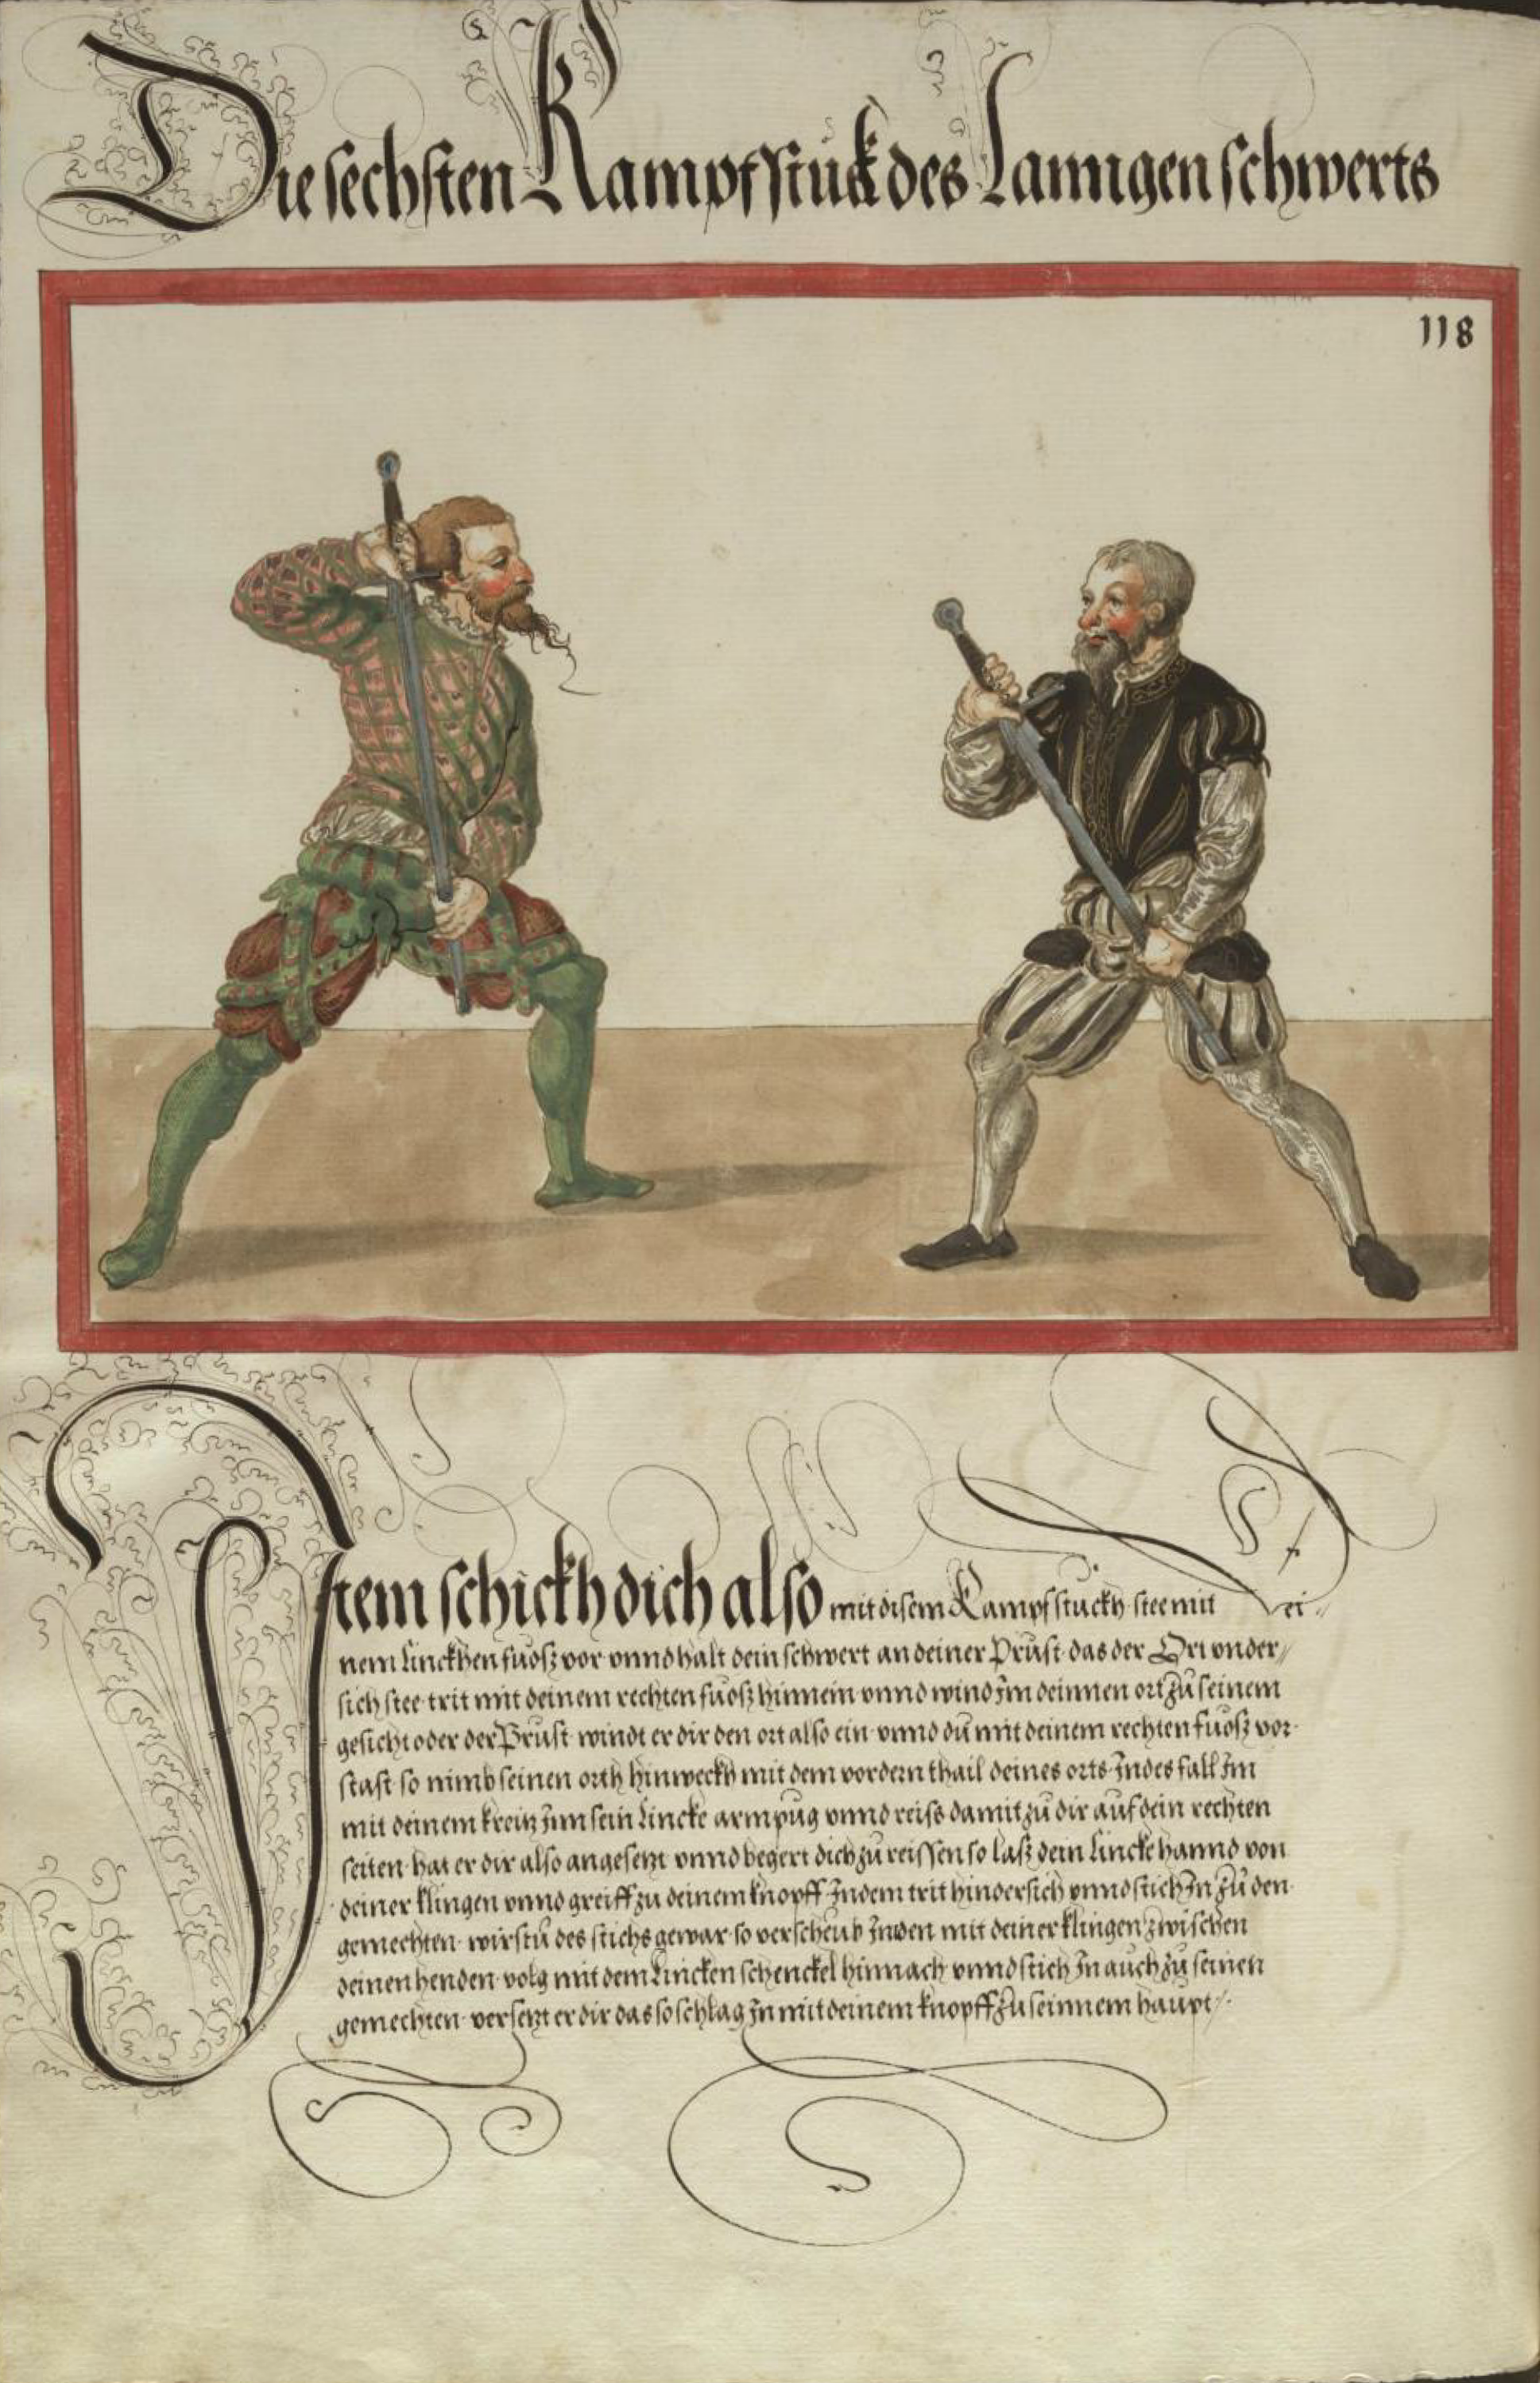 Die sechsten Kampfstuck des Lanngen schwerts
118
Item schickh dich also mit disem Kampfstuckh stee mit dei„
nem linckhen fuosz vor unnd halt dein schwert an deiner Prust das der Ort under„
sich stee trit mit deinem rechten fuosz hinnein unnd wind Im deinnen ort zu seinem
gesicht oder der Prust windt er dir den ort also ein unnd du mit deinem rechten fuosz vor
stast so nimb seinen orth hinweckh mit dem vordern thail deines orts Indes fall Im
mit deinem kreitz Inn sein Lincke armpug unnd reiss damit zu dir auf dein rechten
seiten hat er dir also angesetzt unnd begert dich zu reissen so lasz dein Lincke hannd von
deiner klingen unnd greiff zu deinem knopff Indem trit hindersich unnd stich In zu den
gemechten wirstu des stichs gewar so verscheub Inden mit deiner klingen zwischen
deinen henden volg mit dem Lincken schenckel hinnach unnd stich In auch zu seinen
gemechten versetzt er dir das so schlag In mit deinem knopff zu seinnem haupt